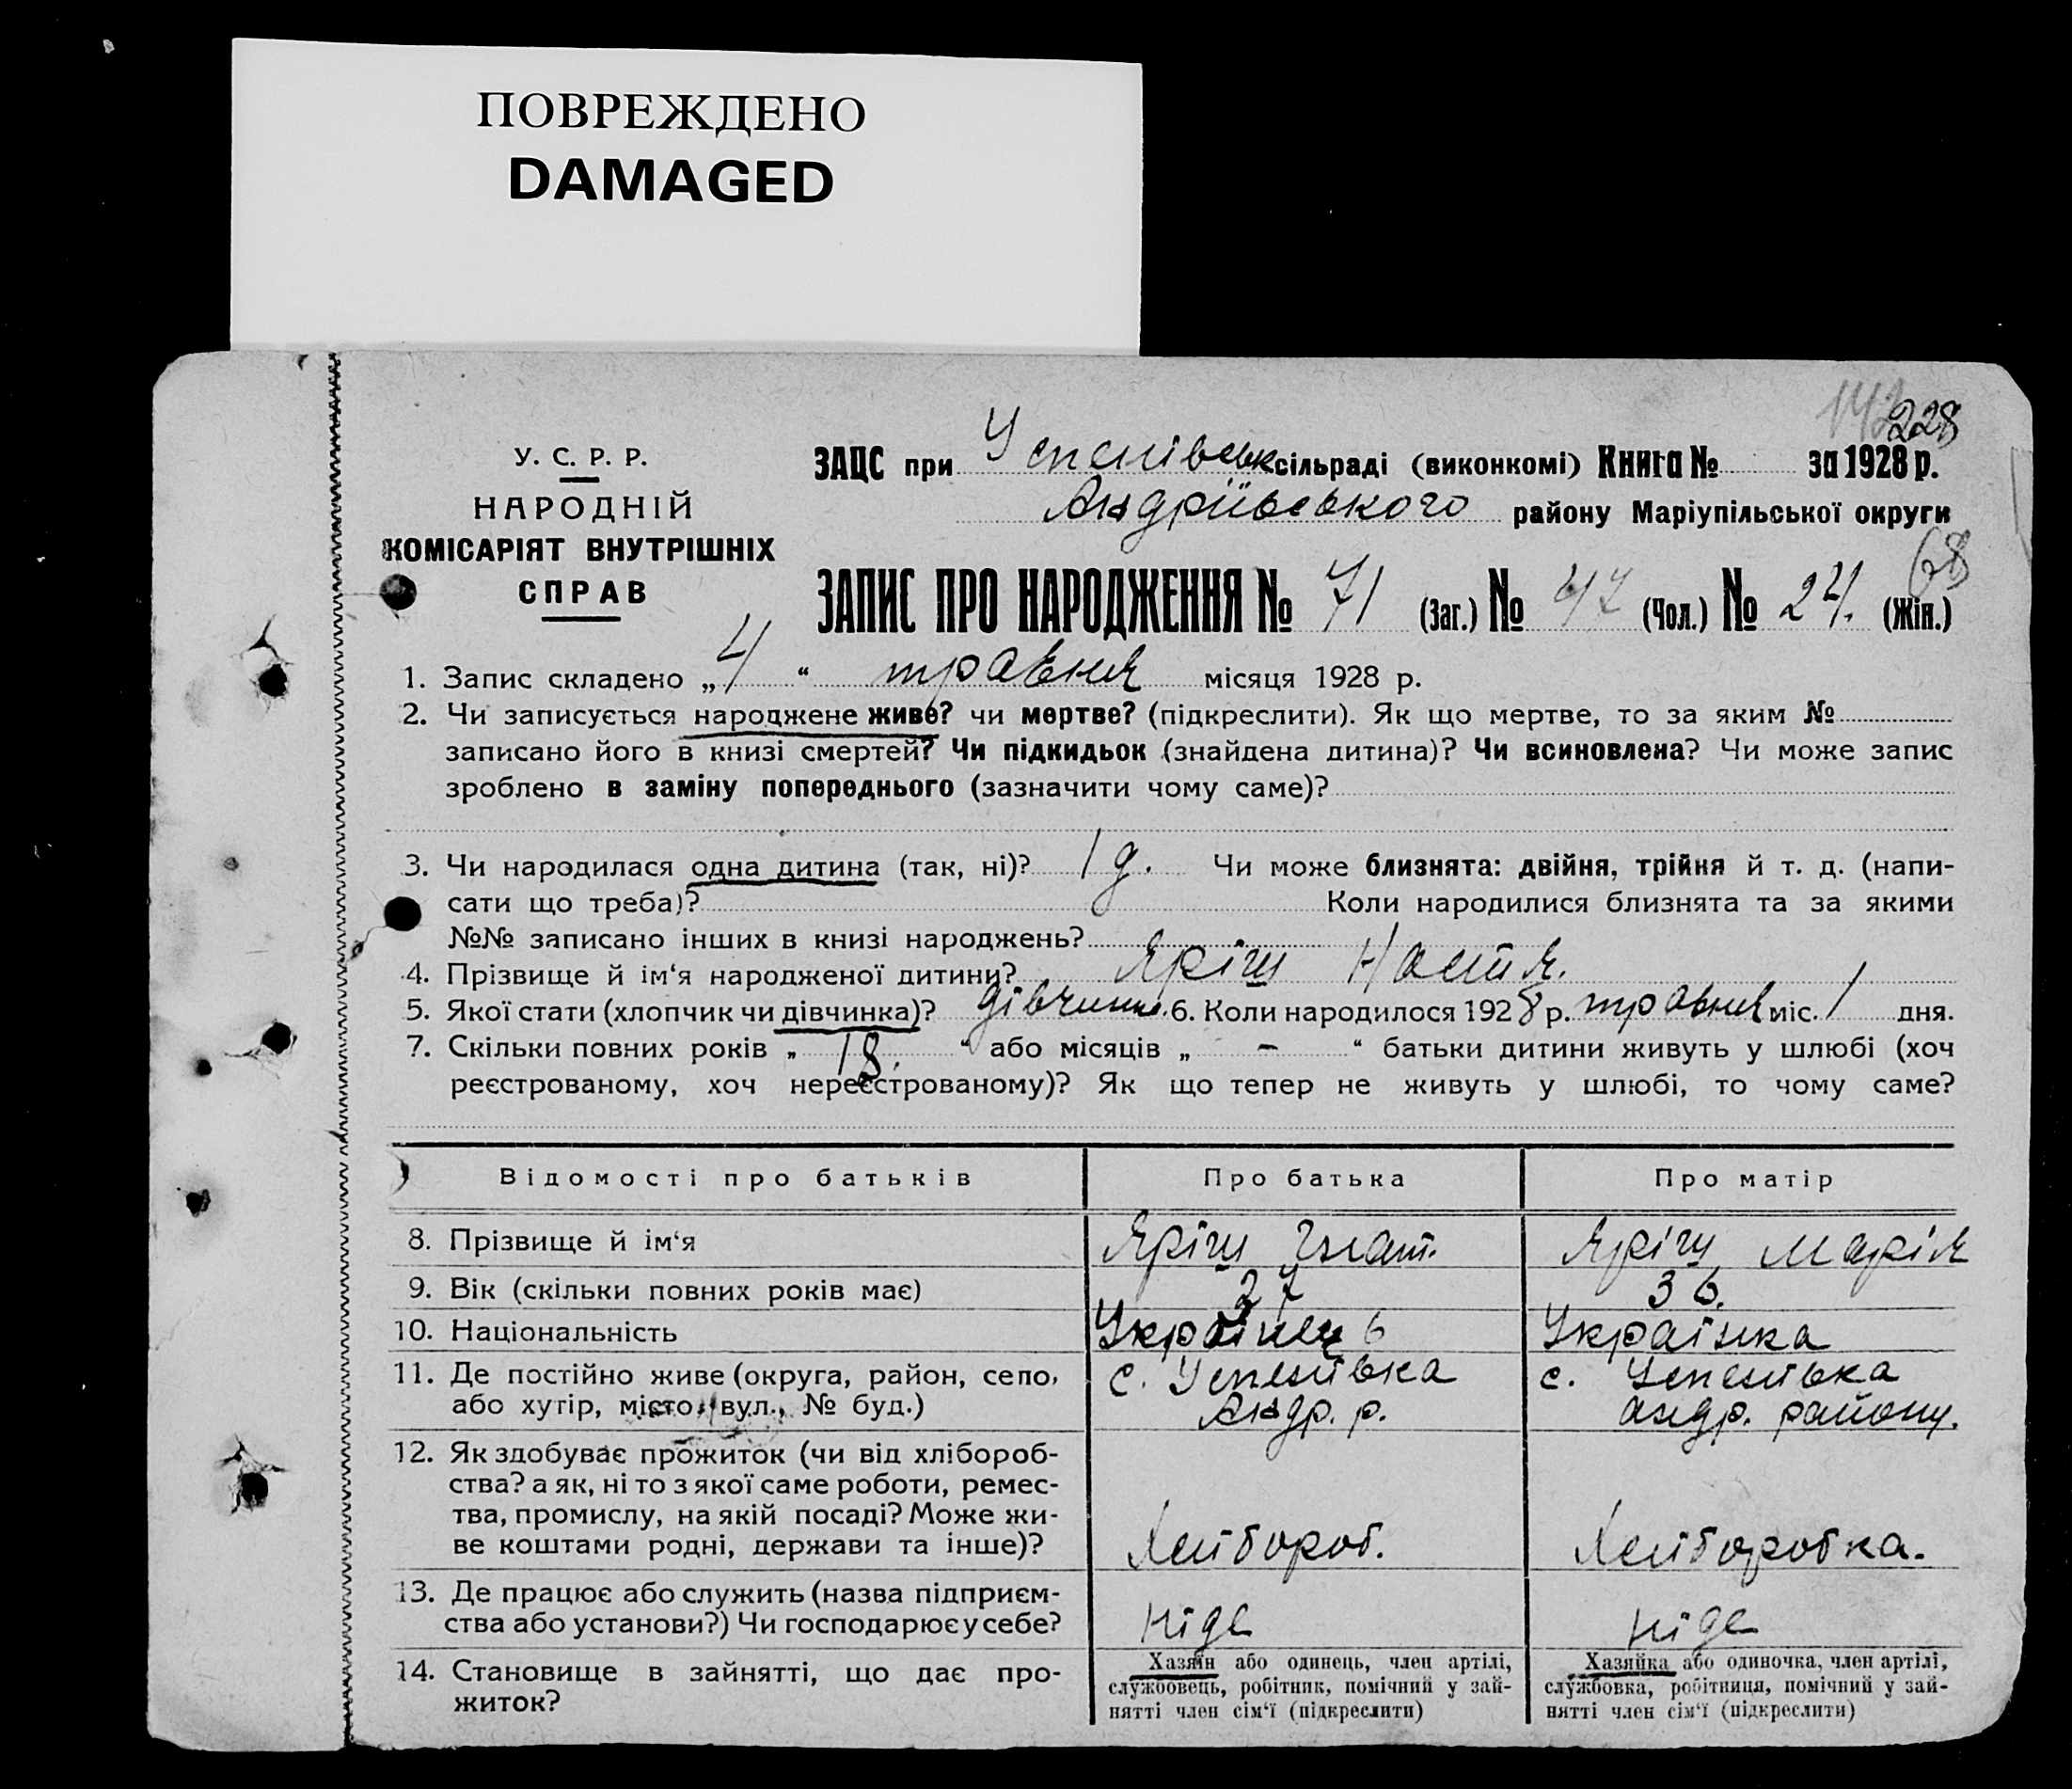 ПОВРЕЖДЕНО
DAMAGED
142 228
У. С. Р. Р.
НАРОДНІЙ
КОМІСАРІЯТ ВНУТРІШНІХ
СПРАВ
ЗАЦС при Успенівськ сільраді (виконкомі) Книга № за 1928 р.
Андріївського району Маріупільської округи
68
ЗАПИС ПРО НАРОДЖЕННЯ № 71 (Заг.) № 47 (Чол.) № 24. (Жін.)
1. Запис складено „4“ травня місяця 1928 р.
2. Чи записується народжене живе? чи мертве? (підкреслити). Як що мертве, то за яким №
записано його в книзі смертей? Чи підкидьок (знайдена дитина)? Чи всиновлена? Чи може запис
зроблено в заміну попереднього (зазначити чому саме)?
3. Чи народилася одна дитина (так, ні)? 1 д. Чи може близнята: двійня, трійня й т. д. (напи-
сати що треба)? Коли народилися близнята та за якими
№№ записано інших в книзі народжень?
4. Прізвище й ім‘я народженої дитини? Яріш Настя.
5. Якої стати (хлопчик чи дівчинка)? дівчинка. 6. Коли народилось 1928 р. травня міс. 1 дня.
7. Скільки повних років „18.“ або місяців „-“ батьки дитини живуть у шлюбі (хоч
реєстрованому, хоч нереєстрованому)? Як що тепер не живуть у шлюбі, то чому саме?
Відомості про батьків Про батька Про матір
8. Прізвище й ім‘я Яріш Гнат. Яріш Марія
9. Вік (скільки повних років має) 37 36.
10. Національність Українець Українка
11. Де постійно живе (округа, район, село, с. Успенівка с. Успенівка
або хутір, місто, вул., № буд.) Андр. р. андр. району.
12. Як здобуває прожиток (чи від хлібороб-
ства? а як, ні то з якої саме роботи, ремес-
тва, промислу, на якій посаді? Може жи-
ве коштами родні, держави та інше)? Хлібороб. Хліборобка.
13. Де працює або служить (назва підприєм-
ства або установи?) Чи господарює у себе? Ніде Ніде
14. Становище в зайнятті, що дає про-
житок?
Хазяїн або одинець, член артілі,
службовець, робітник, помічний у зай-
нятті член сім‘ї (підкреслити)
Хазяйка або одиночка, член артілі,
службовка, робітниця, помічний у зай-
нятті член сім‘ї (підкреслити)